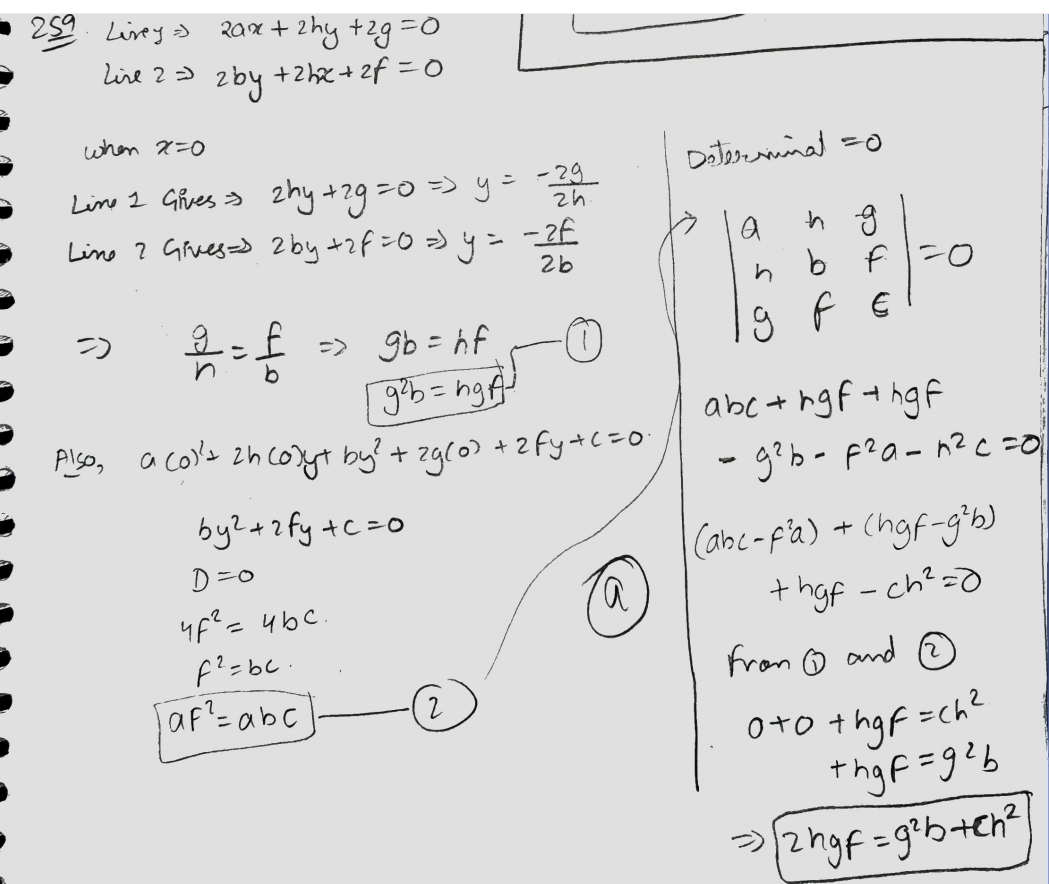 259. Line 1 ⇒ 2ax + 2hy + 2g = 0
Line 2 ⇒ 2by + 2hx + 2f = 0
when x=0
Line 1 Gives ⇒ 2hy + 2g = 0 ⇒ y = -2g/2h
Line 2 Gives ⇒ 2by + 2f = 0 ⇒ y = -2f/2b
⇒ g/h = f/b ⇒ gb = hf
g²b = hgf — ①
Also, a(0)² + 2h(0)y + by² + 2g(0) + 2fy + c = 0
by² + 2fy + c = 0
D = 0
4f² = 4bc.
f² = bc.
af² = abc — ②
ⓐ
Determinal = 0
| a h g |
| h b f | = 0
| g f c |
abc + hgf + hgf
- g²b - f²a - h²c = 0
(abc - f²a) + (hgf - g²b)
+ hgf - ch² = 0
from ① and ②
0 + 0 + hgf = ch²
+ hgf = g²b
⇒ 2hgf = g²b + ch²